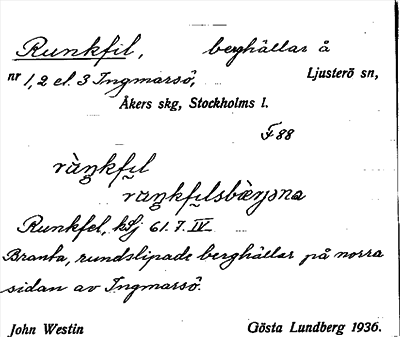 Runkfil, berghällar å
nr 1, 2 el. 3 Ingmarsö, Ljusterö sn,
Åkers skg, Stockholms l.
F 88
ràŋkfil
raŋkfilsbærjəna
Runkfel, kSj 61.7. IV
Branta, rundslipade berghällar på norra
sidan av Ingmarsö.
John Westin Gösta Lundberg 1936.